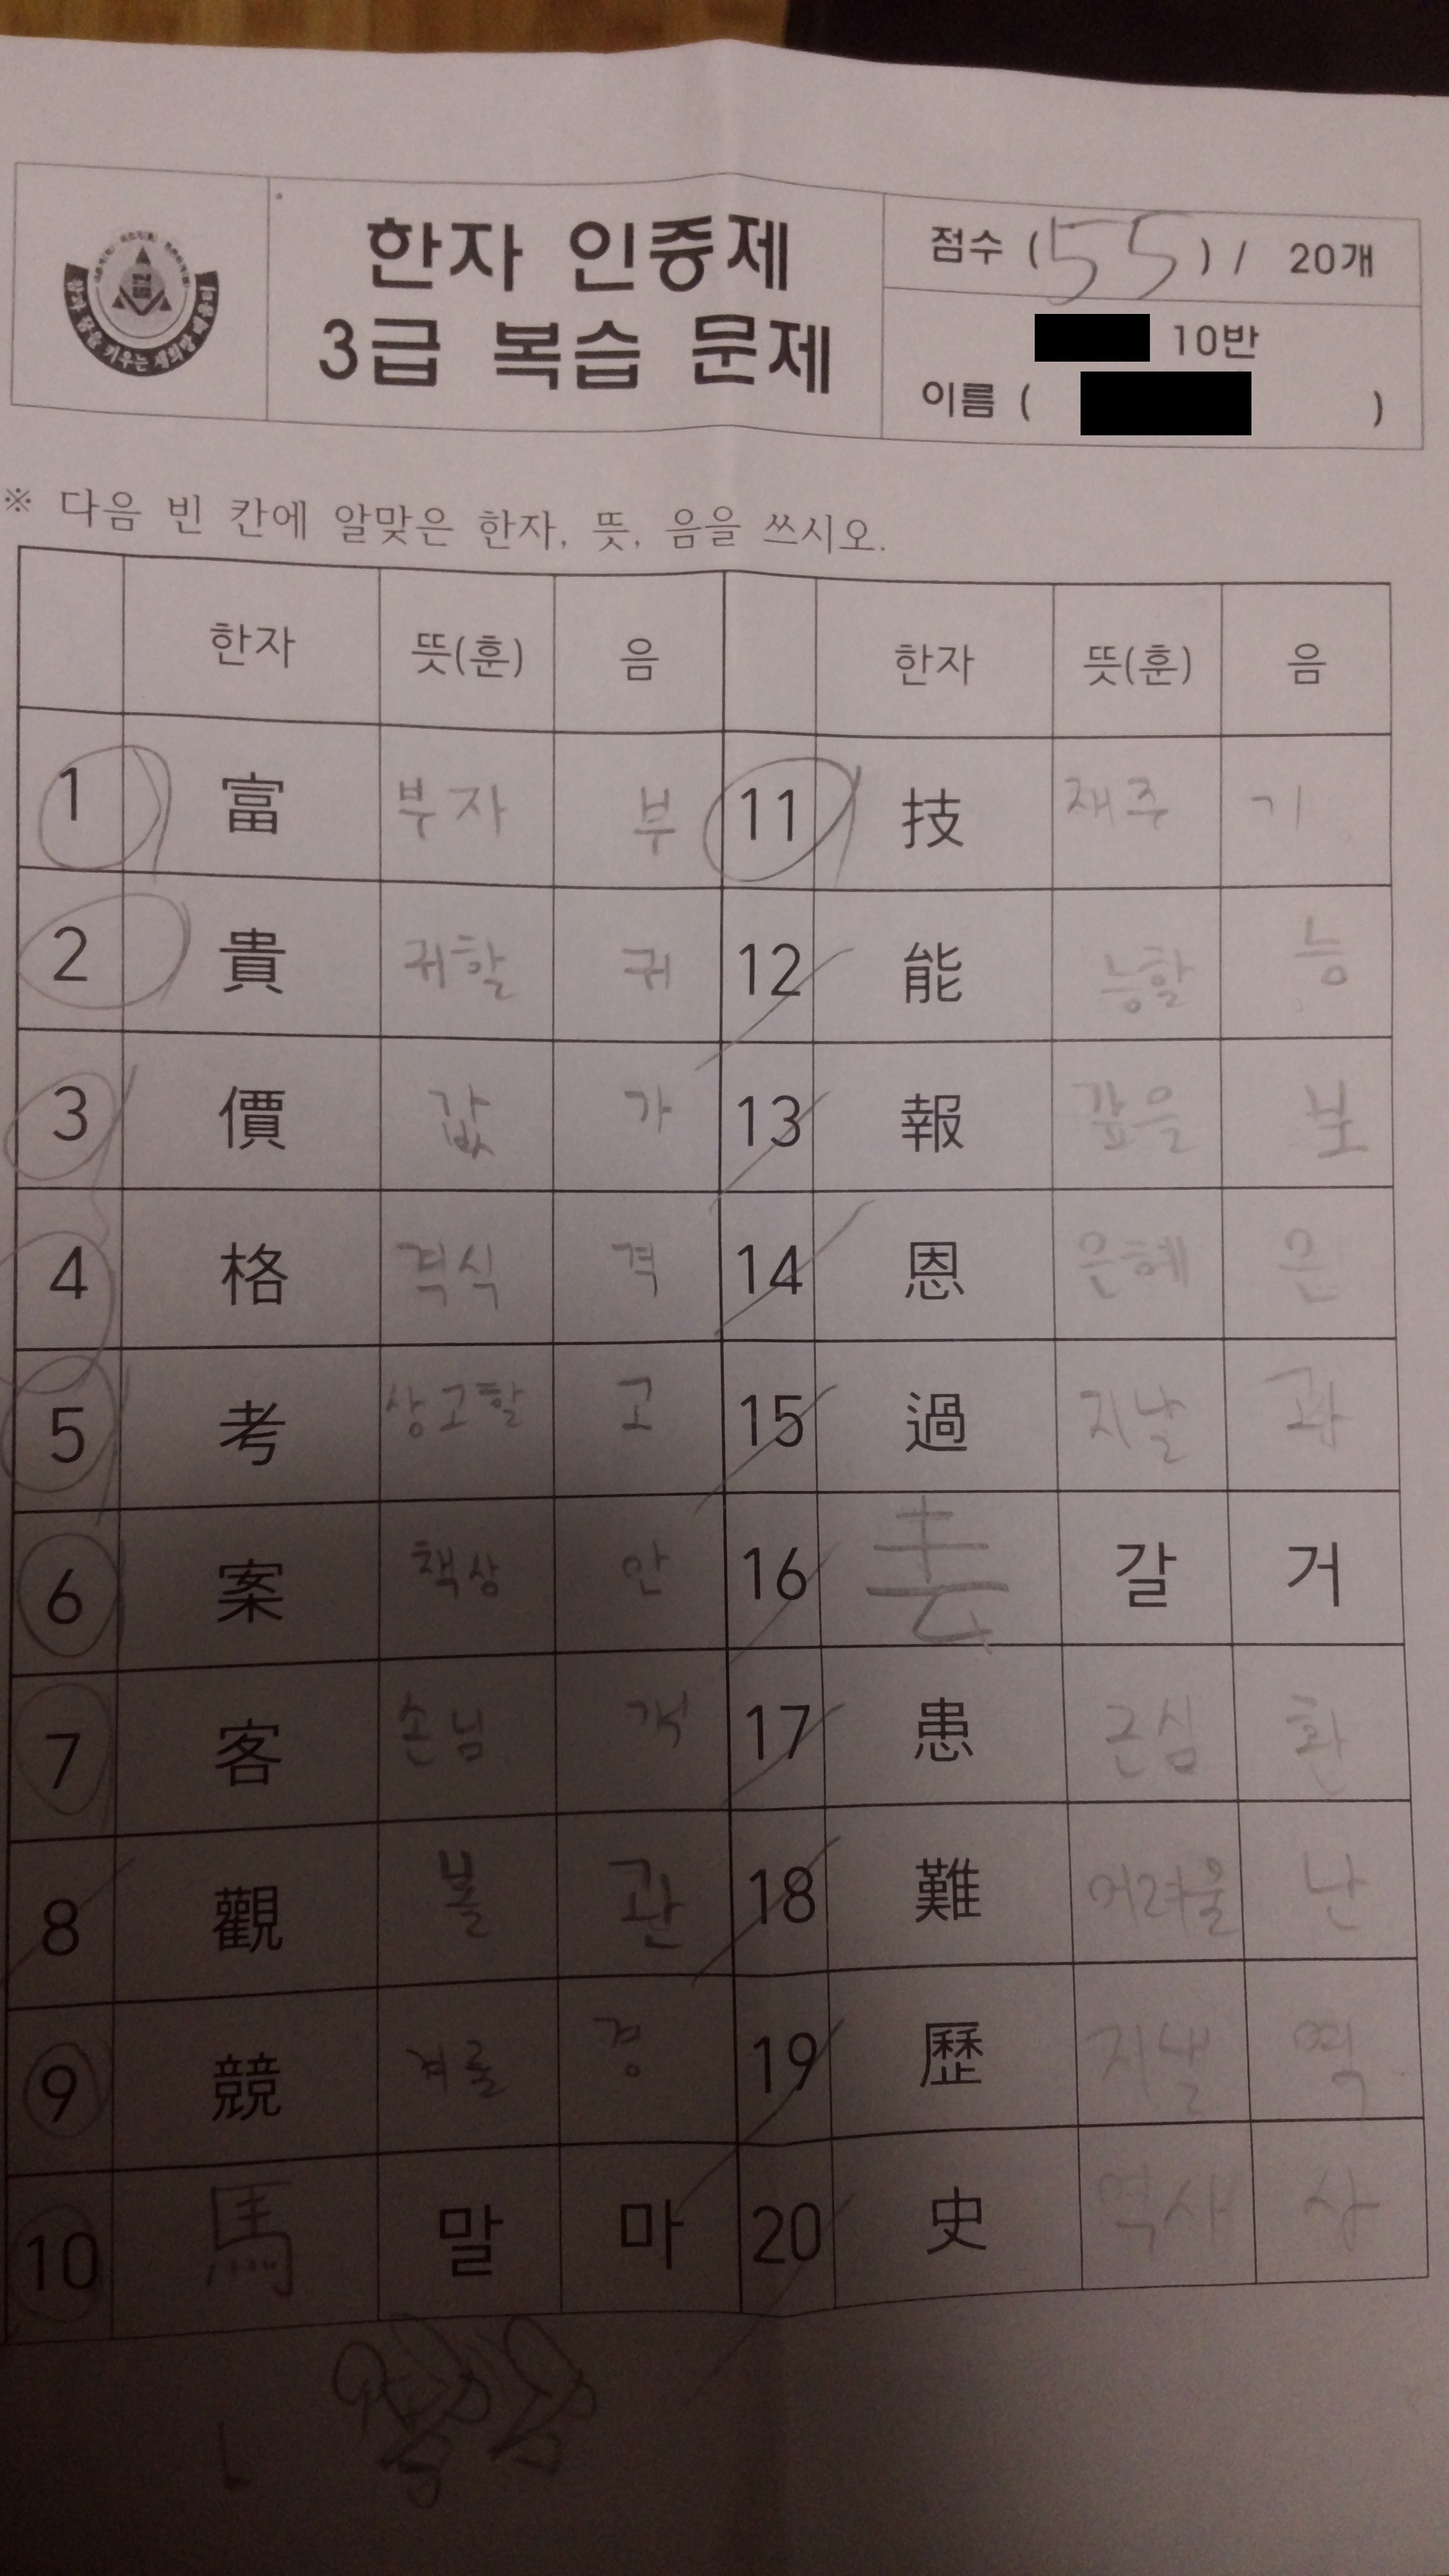 한자 인증제
3급 복습 문제
점수 (55) / 20개
10반
이름 ( )
※ 다음 빈 칸에 알맞은 한자, 뜻, 음을 쓰시오.
한자 뜻(훈) 음 한자 뜻(훈) 음
1 富 부자 부 11 技 재주 기
2 貴 귀할 귀 12 能 능할 능
3 價 값 가 13 報 갚을 보
4 格 격식 격 14 恩 은혜 은
5 考 상고할 고 15 過 지날 과
6 案 책상 안 16 去 갈 거
7 客 손님 객 17 患 근심 환
8 觀 볼 관 18 難 어려울 난
9 競 겨룰 경 19 歷 지낼
10 馬 말 마 20 史 역사